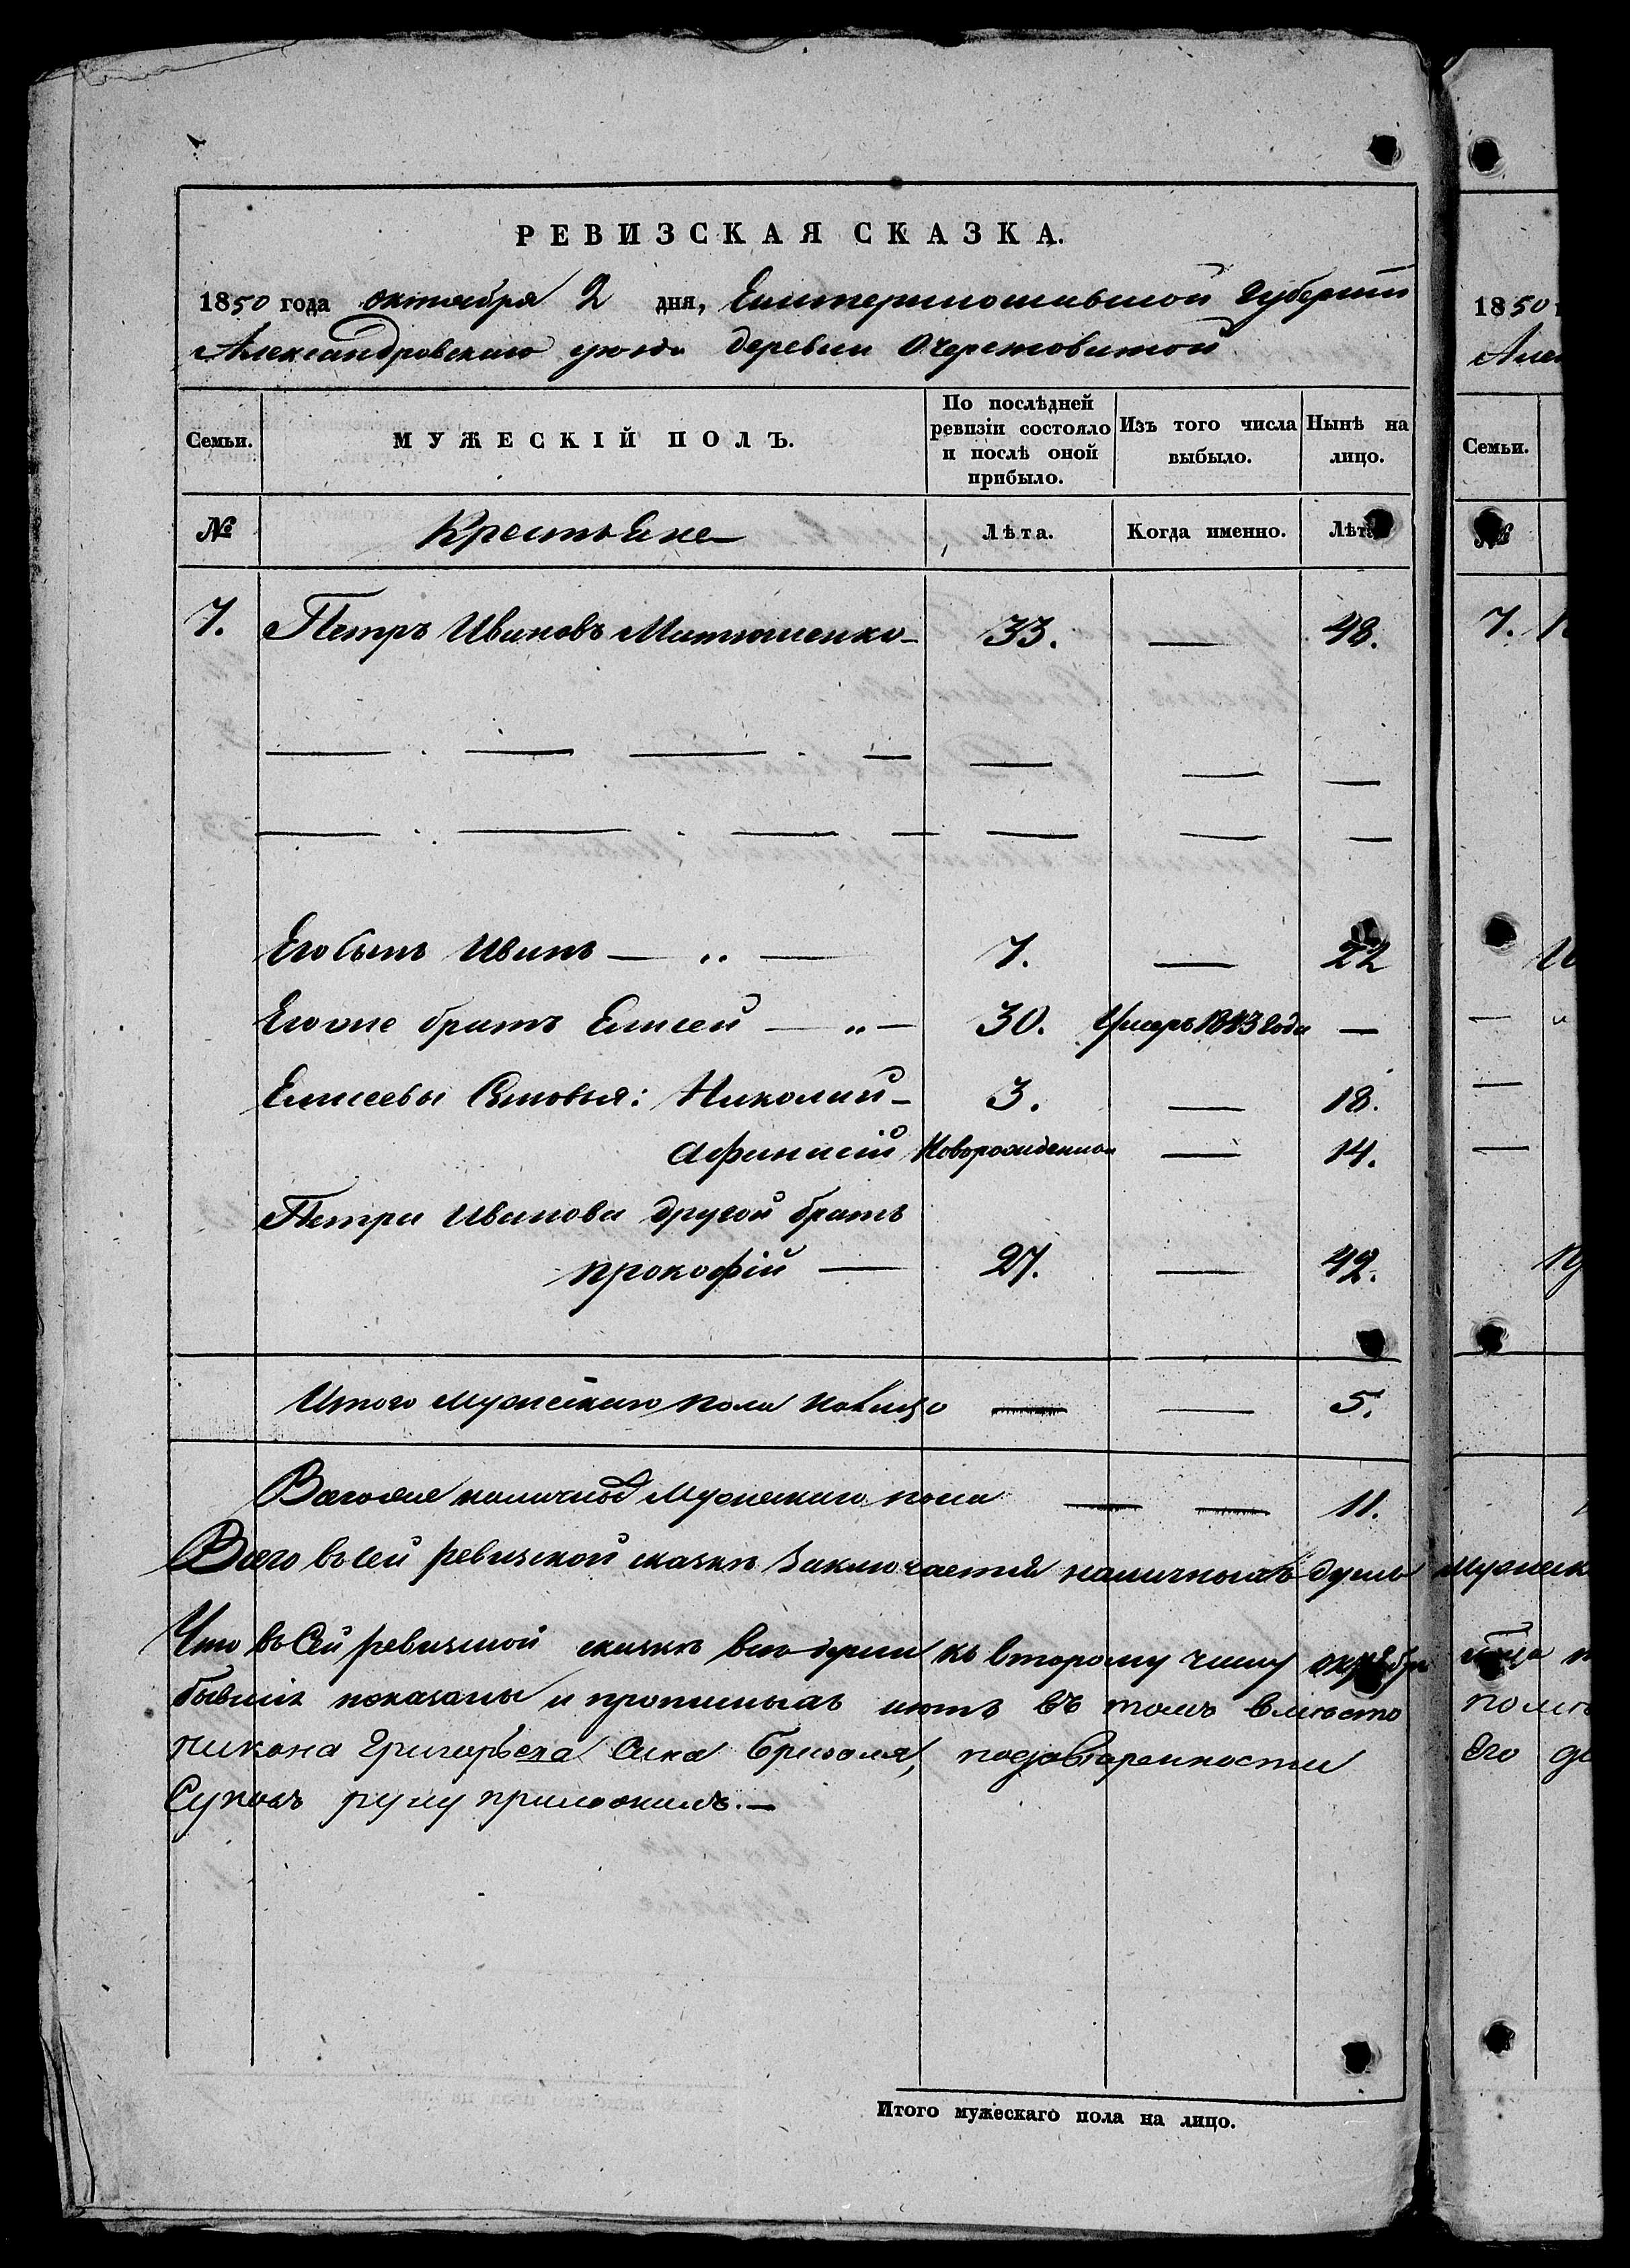 РЕВИЗСКАЯ СКАЗКА.
1850 года октября 2 дня, Екатеринославской Губернии
Александровского уезда деревни Очеретоватой
Семьи.
МУЖЕСКІЙ ПОЛЪ.
По послѣдней ревизіи состояло и послѣ оной прибыло.
Изъ того числа выбыло.
Нынѣ на лицо.
№ Крестьяне Лѣта. Когда именно. Лѣта
7. Петръ Ивановъ Матюшенко 33. — 48.
Его сынъ Иванъ — „ — 7. — 22
Его же братъ Елисей — „ — 30. Умеръ 1843 года —
Елисеевы Сыновья: Николай 3. — 18.
Афанасій Новорожденной — 14.
Петра Иванова другой братъ
Прокофій — 27. — 42.
Итого мужескаго пола на лицо — — 5.
Всего же наличнаго Мужескаго пола — — 11.
Всего въ сей ревизской сказкѣ заключается наличныхъ душъ
Что въ Сей ревизской сказкѣ все души къ второму числу октября
бывшіе показаны и прописныхъ нетъ въ томъ вместо
Никона Григорьева Сына
руку приложилъ. —
Итого мужескаго пола на лицо.
1850
Але
Семьи.
№
7.
Мужеск
Его